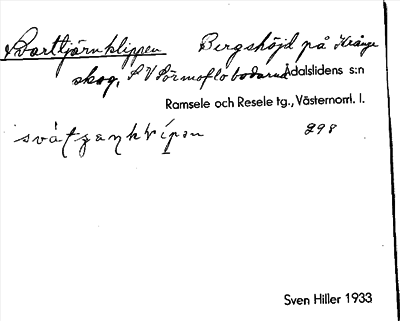 Svarttjärnklippen Bergshöjd på Krånge
skog, S V Sörmoflobodarna Ådalslidens s:n
Ramsele och Resele tg., Västernorrl. l.
298
Sven Hiller 1933